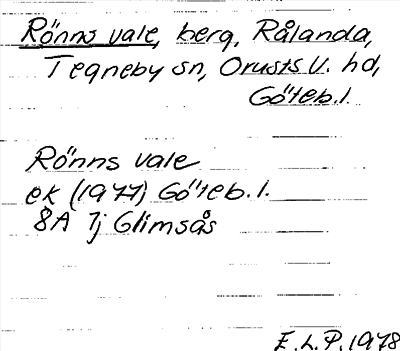 Rönns vale, berg, Rålanda,
Tegneby sn, Orusts V. hd,
Göteb. l.
Rönns vale
ek (1977) Göteb. l.
8A 7j Glimsås
E.L.P. 1978